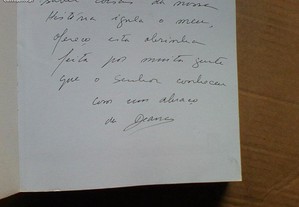 o saber coisas da nossa
História iguala o meu,
ofereço esta obrinha
feita por muita gente
que o senhor conhece
com um abraço
de